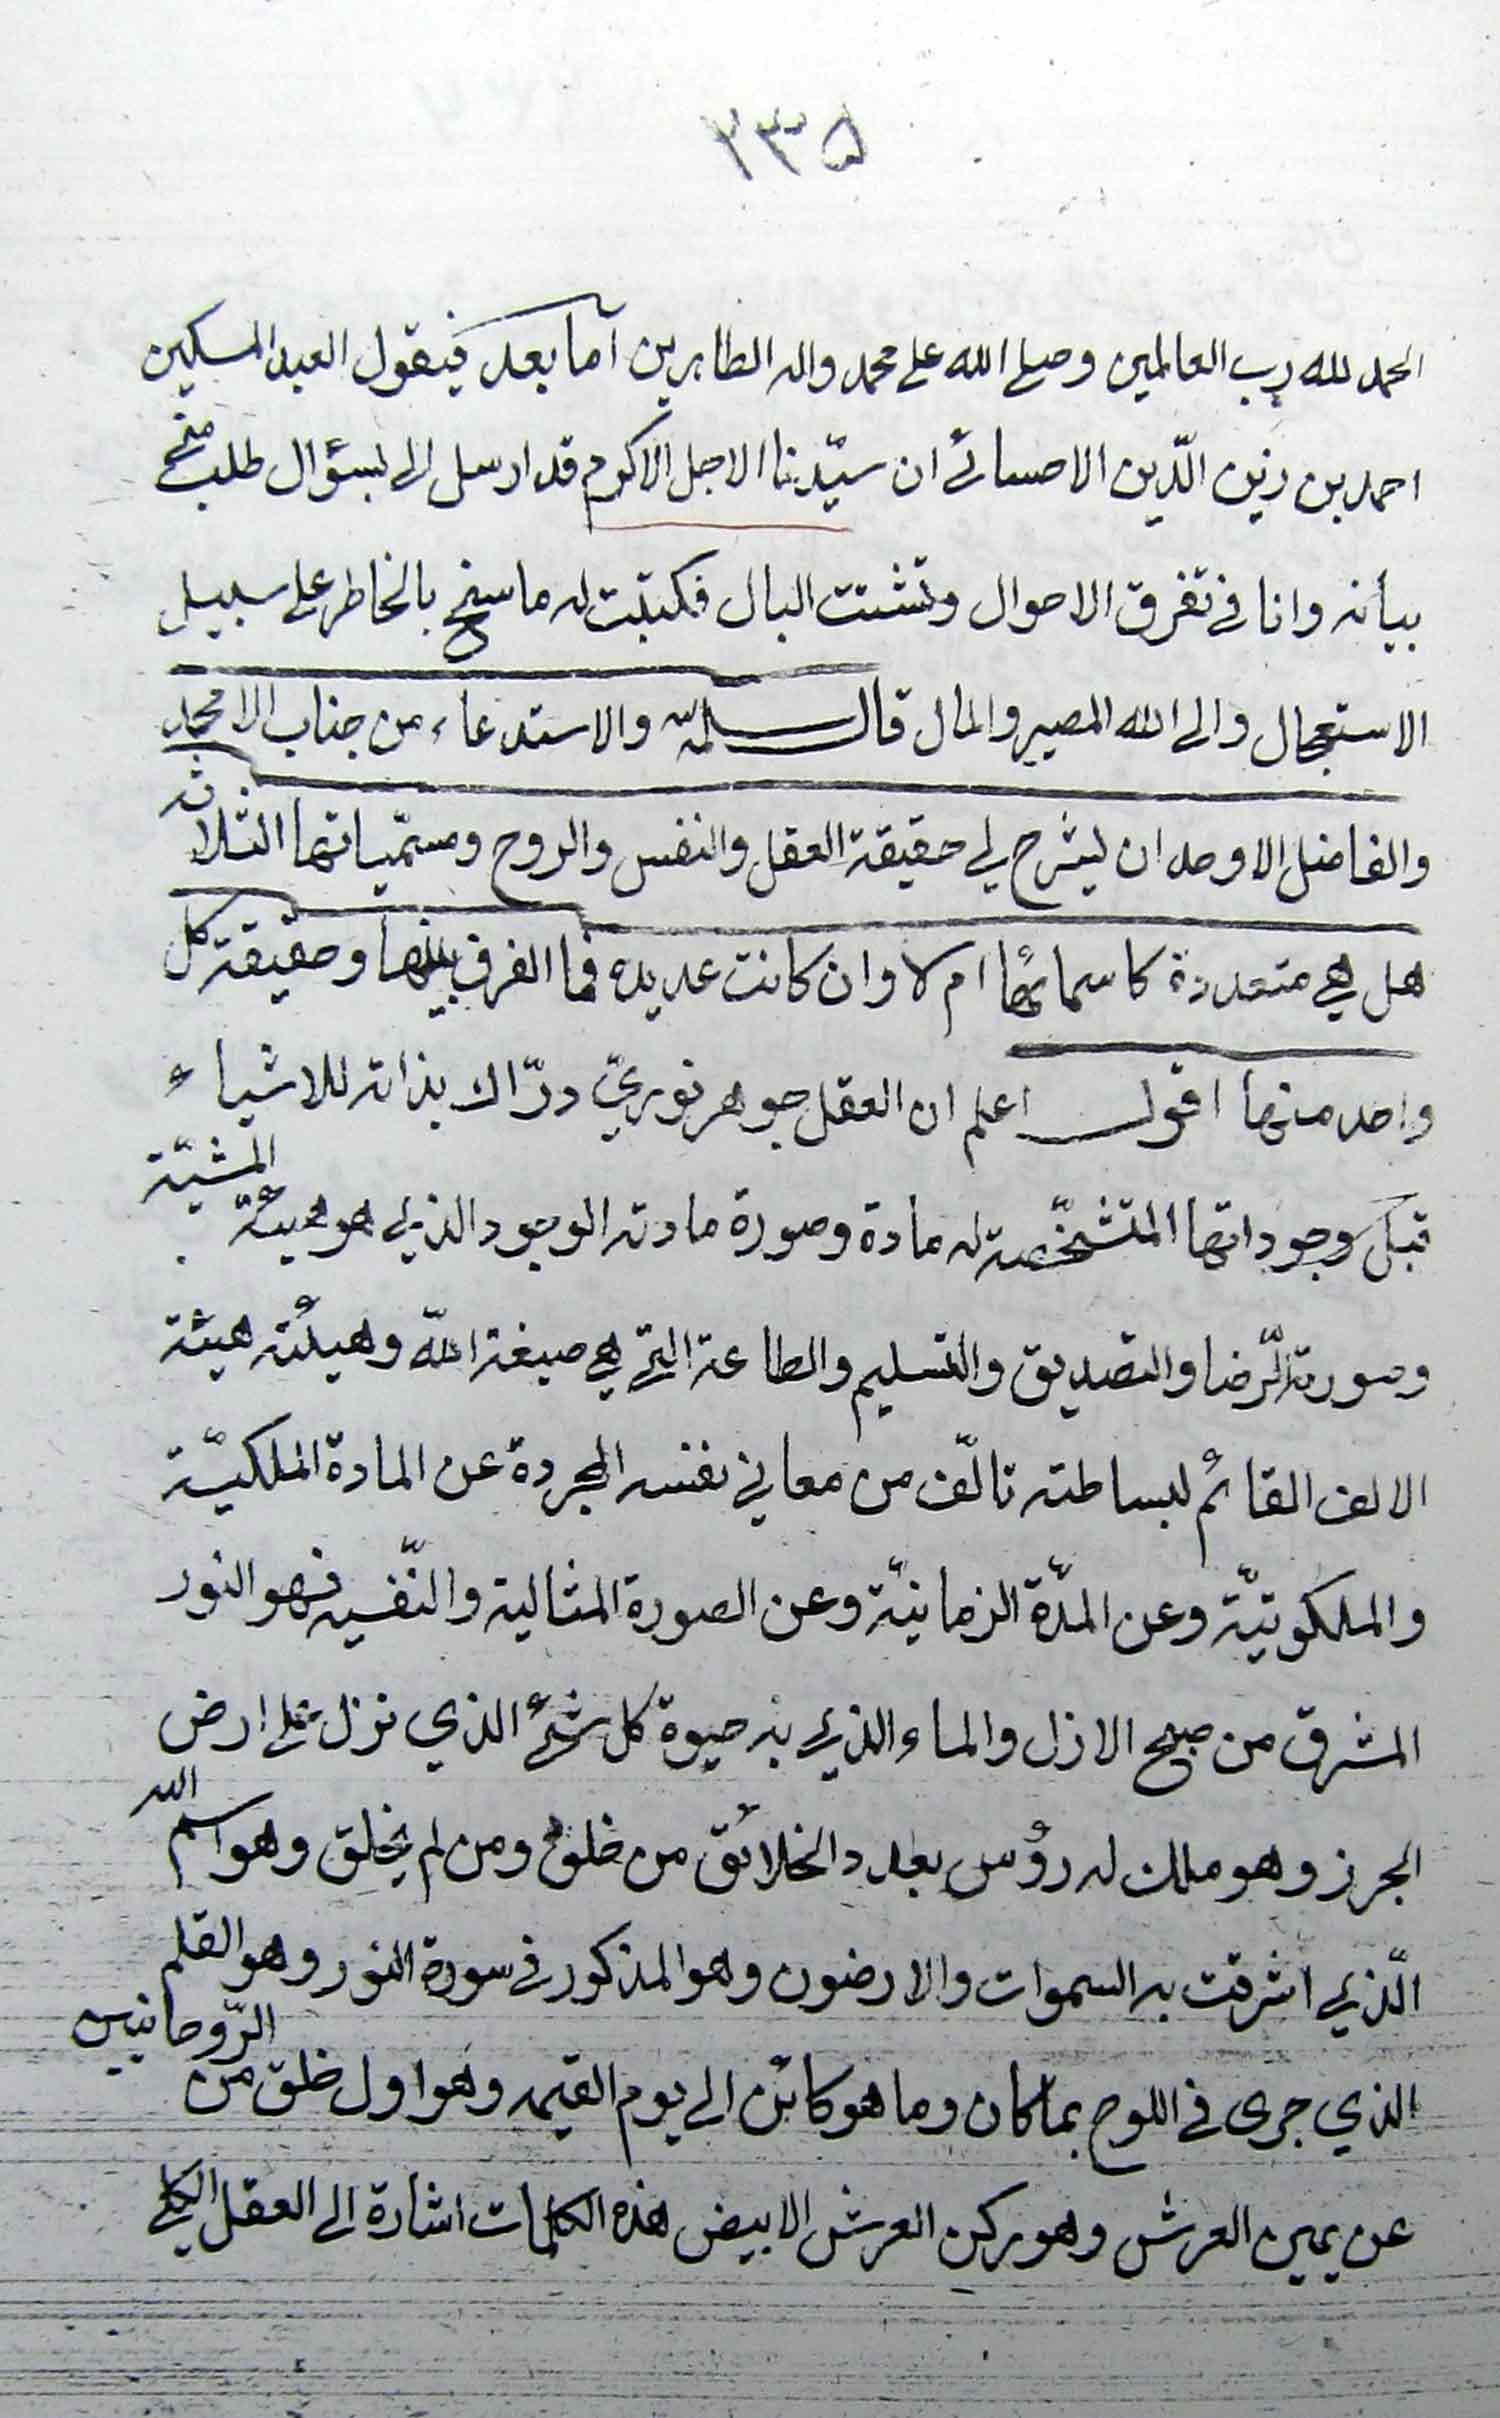 ٢٣۵
الحمد لله رب العالمين وصلى الله على محمد واله الطاهرين اما بعد فيقول العبد المسكين
احمد بن زين الدّين الاحسائي ان سيّدنا الاجل الاكرم قد ارسل الى بسؤال طلب مني
بيانه وانا في تفرق الاحوال وتشتت البال فكتبت له ما سنح بالخاطر على سبيل
الاستعجال والى الله المصير والمال قال سلمه الله والاستدعاء من جناب الامجد
والفاضل الاوحد ان يشرح لي حقيقة العقل والنفس والروح ومسمّياتها الثلاث
هل هي متعددة كاسمائها ام لا وان كانت عديده فما الفرق بينها وحقيقة كل
واحد منها اقول اعلم ان العقل جوهر نوريّ درّاك بذاته للاشياء
قبل وجوداتها المتشخّصة له مادة وصورة مادته الوجود الذي هو هيئة المشيّة
وصورته الرّضا والتصديق والتسليم والطاعة التي هي صبغة اللّه وهيئته هيئة
الالف القائم لبساطته تالّف من معاني نفسه المجردة عن المادة الملكيّة
والملكوتيّة وعن المدّة الزمانيّة وعن الصورة المثالية والنّفسيه فهو النور
المشرق من صبح الازل والماء الذي به حيوة كل شئ الذي نزل على ارض
الجرز وهو ملك له رؤس بعدد الخلائق من خلق ومن لم يخلق وهو اسم الله
الّذي اشرقت به السموات والارضون وهو المذكور في سورة النور وهو القلم
الذي جرى في اللوح بما كان وما هو كائن الى يوم القيمه وهو اول خلق من الرّوحانيين
عن يمين العرش وهو ركن العرش الابيض هذه الكلمات اشارة الى العقل الكلي